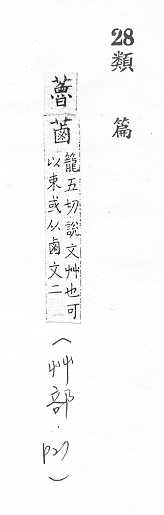 28
類篇
蓾𦯄
籠五切說文艸也可
以束或从鹵文二
(艸部.p27)